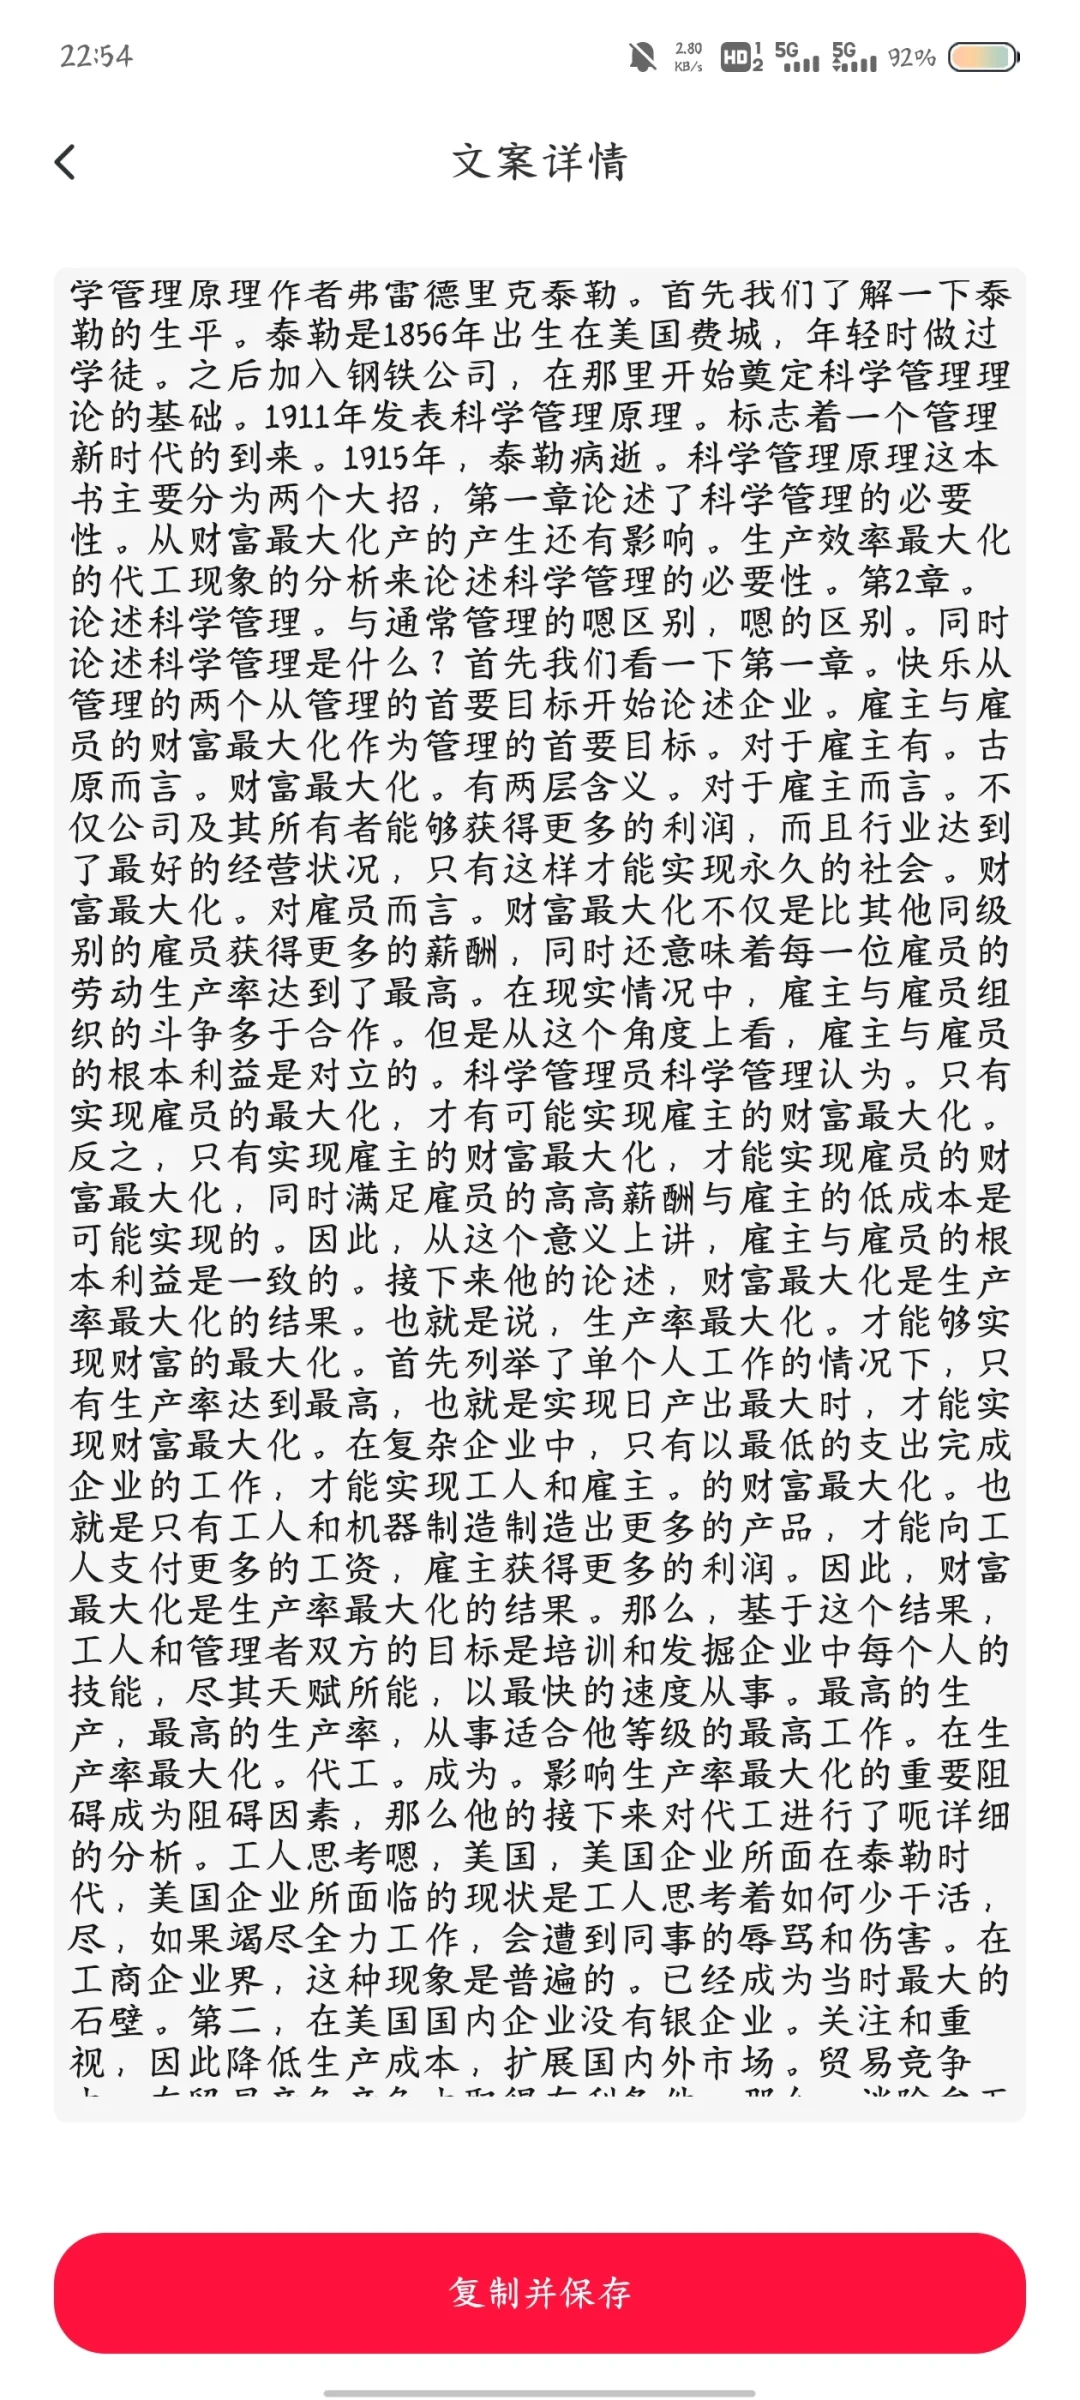 22:54
2.80 KB/s HD 1 2 5G 5G 92%
文案详情
学管理原理作者弗雷德里克泰勒。首先我们了解一下泰
勒的生平。泰勒是1856年出生在美国费城，年轻时做过
学徒。之后加入钢铁公司，在那里开始奠定科学管理理
论的基础。1911年发表科学管理原理。标志着一个管理
新时代的到来。1915年，泰勒病逝。科学管理原理这本
书主要分为两个大招，第一章论述了科学管理的必要
性。从财富最大化产的产生还有影响。生产效率最大化
的代工现象的分析来论述科学管理的必要性。第2章。
论述科学管理。与通常管理的嗯区别，嗯的区别。同时
论述科学管理是什么？首先我们看一下第一章。快乐从
管理的两个从管理的首要目标开始论述企业。雇主与雇
员的财富最大化作为管理的首要目标。对于雇主有。古
原而言。财富最大化。有两层含义。对于雇主而言。不
仅公司及其所有者能够获得更多的利润，而且行业达到
了最好的经营状况，只有这样才能实现永久的社会。财
富最大化。对雇员而言。财富最大化不仅是比其他同级
别的雇员获得更多的薪酬，同时还意味着每一位雇员的
劳动生产率达到了最高。在现实情况中，雇主与雇员组
织的斗争多于合作。但是从这个角度上看，雇主与雇员
的根本利益是对立的。科学管理员科学管理认为。只有
实现雇员的最大化，才有可能实现雇主的财富最大化。
反之，只有实现雇主的财富最大化，才能实现雇员的财
富最大化，同时满足雇员的高高薪酬与雇主的低成本是
可能实现的。因此，从这个意义上讲，雇主与雇员的根
本利益是一致的。接下来他的论述，财富最大化是生产
率最大化的结果。也就是说，生产率最大化。才能够实
现财富的最大化。首先列举了单个人工作的情况下，只
有生产率达到最高，也就是实现日产出最大时，才能实
现财富最大化。在复杂企业中，只有以最低的支出完成
企业的工作，才能实现工人和雇主。的财富最大化。也
就是只有工人和机器制造制造出更多的产品，才能向工
人支付更多的工资，雇主获得更多的利润。因此，财富
最大化是生产率最大化的结果。那么，基于这个结果，
工人和管理者双方的目标是培训和发掘企业中每个人的
技能，尽其天赋所能，以最快的速度从事。最高的生
产，最高的生产率，从事适合他等级的最高工作。在生
产率最大化。代工。成为。影响生产率最大化的重要阻
碍成为阻碍因素，那么他的接下来对代工进行了呃详细
的分析。工人思考嗯，美国，美国企业所面在泰勒时
代，美国企业所面临的现状是工人思考着如何少干活，
尽，如果竭尽全力工作，会遭到同事的辱骂和伤害。在
工商企业界，这种现象是普遍的。已经成为当时最大的
石壁。第二，在美国国内企业没有银企业。关注和重
视，因此降低生产成本，扩展国内外市场。贸易竞争
复制并保存